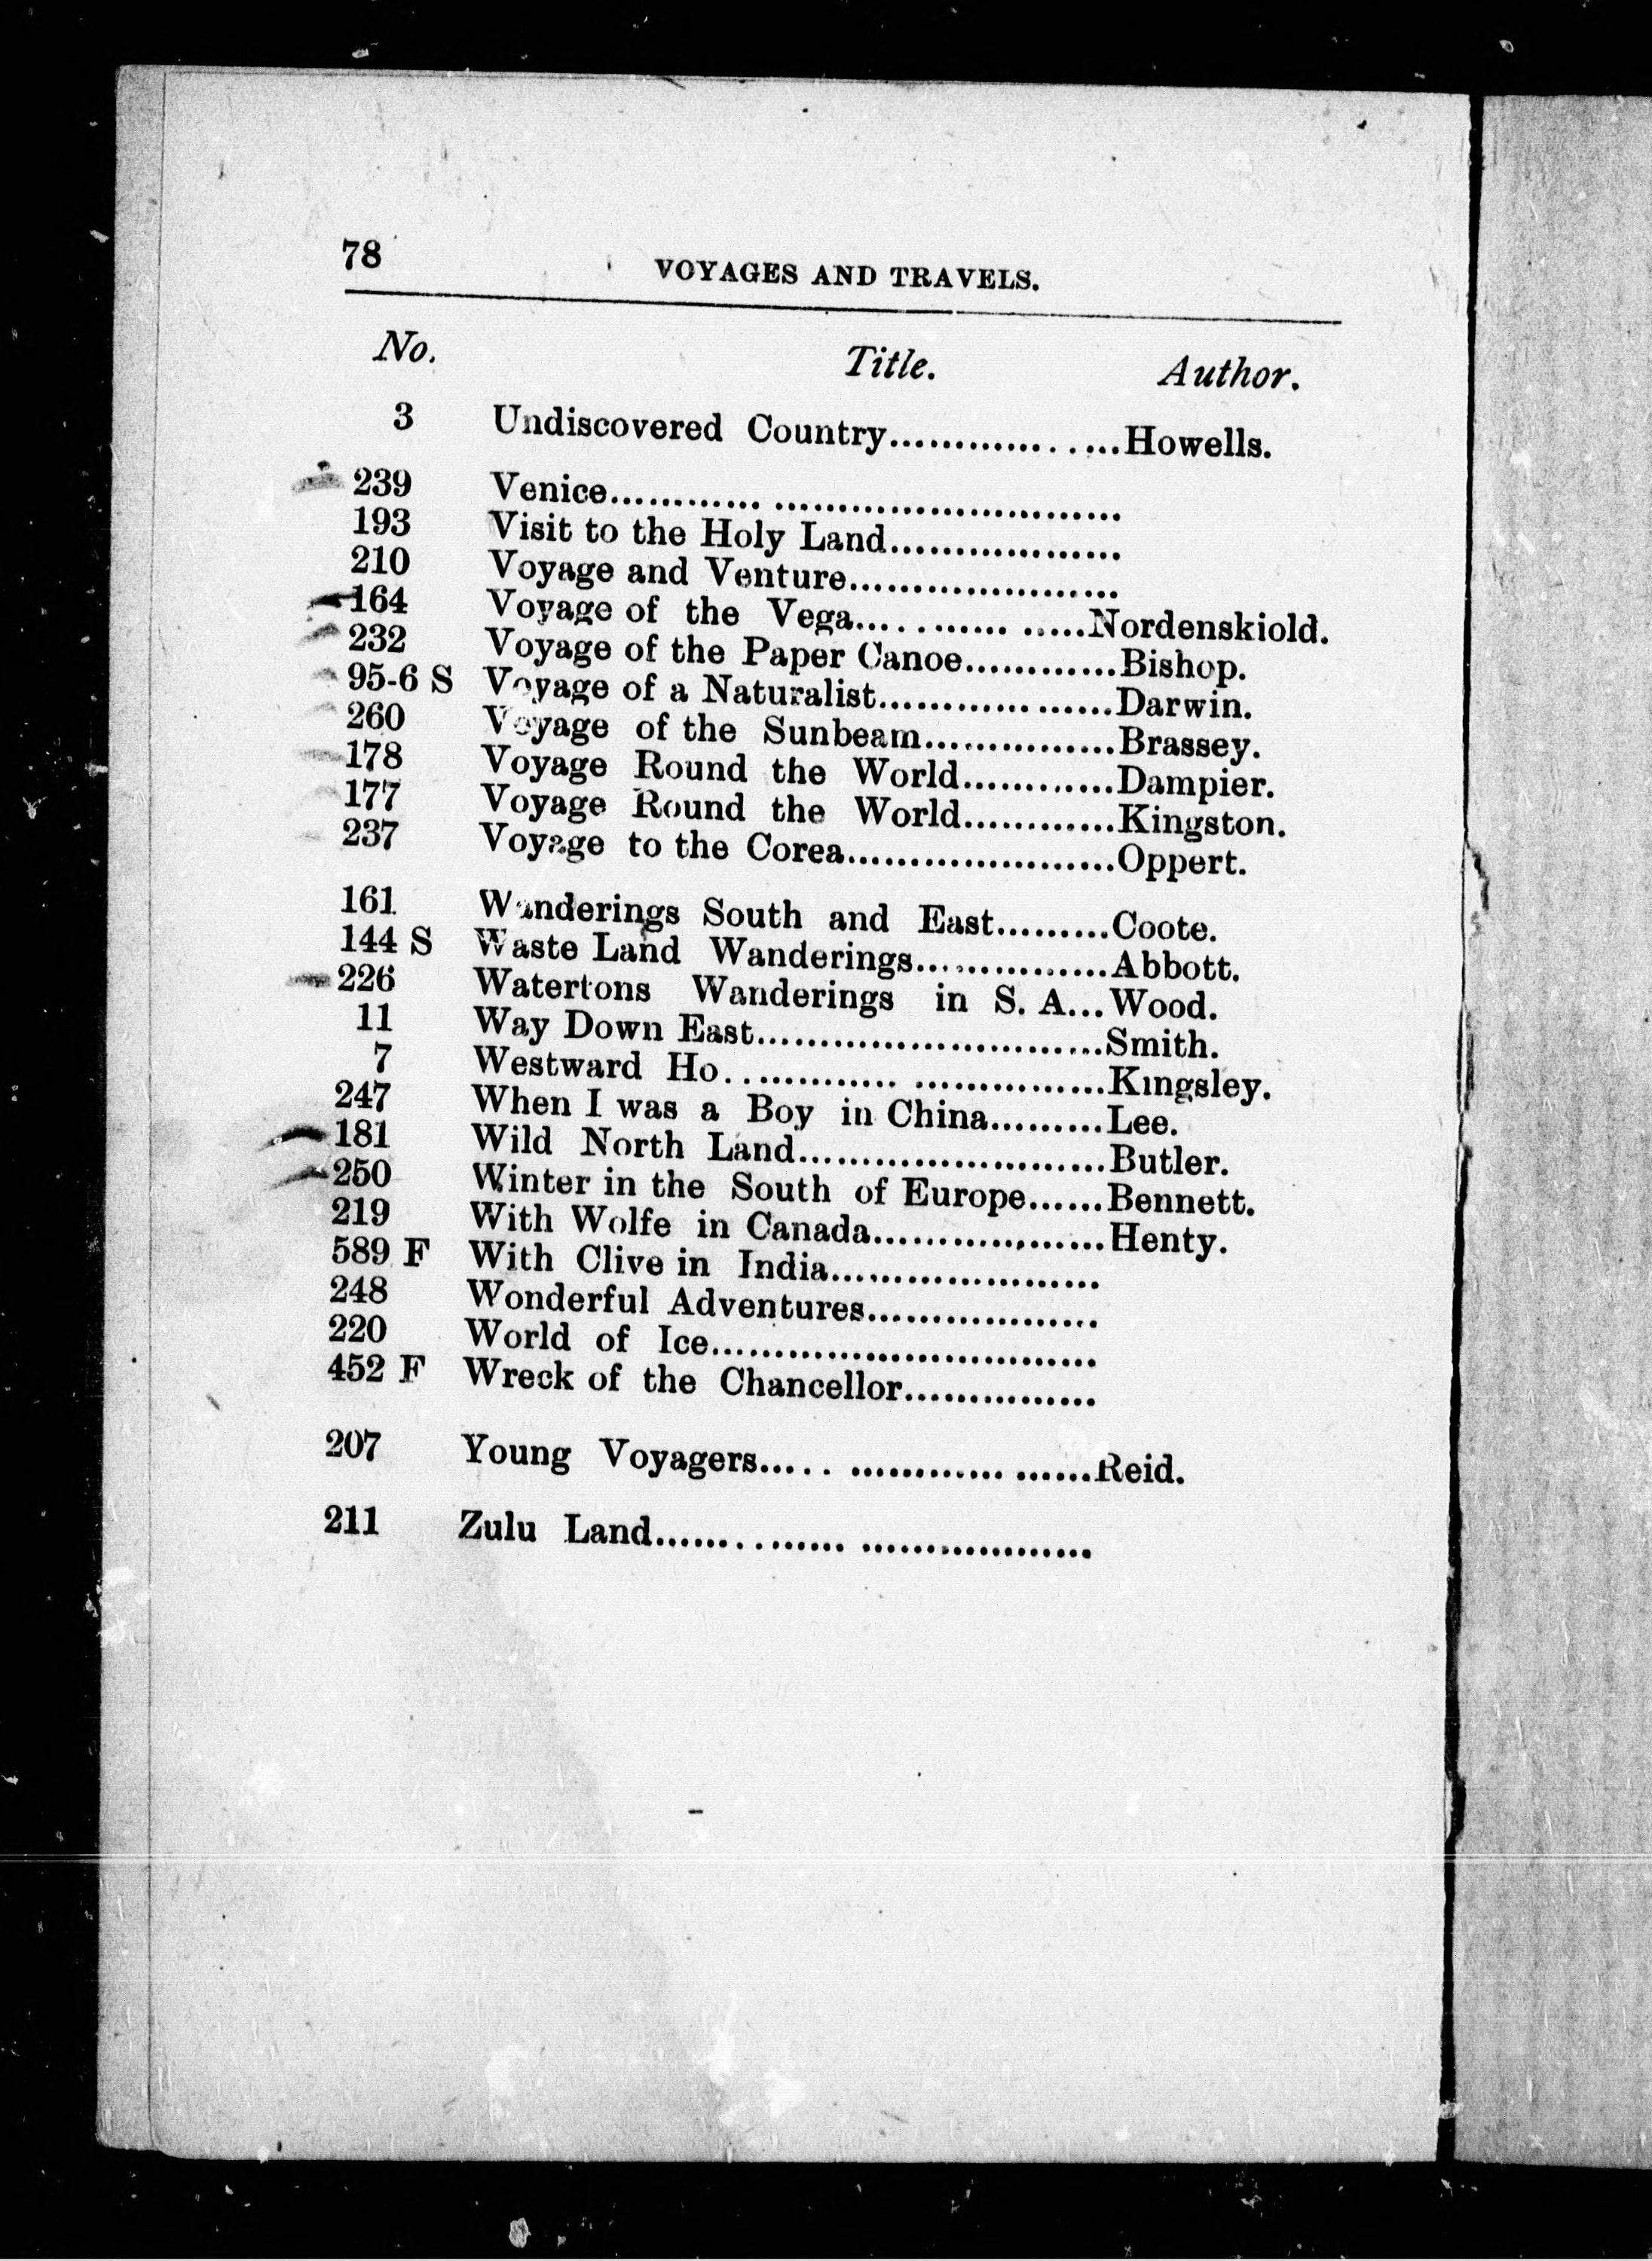 78
VOYAGES AND TRAVELS.
No. Title. Author.
3 Undiscovered Country..................Howells.
239 Venice.......................................
193 Visit to the Holy Land..................
210 Voyage and Venture.....................
164 Voyage of the Vega..................Nordenskiold.
232 Voyage of the Paper Canoe............Bishop.
95-6 S Voyage of a Naturalist..................Darwin.
260 Voyage of the Sunbeam...............Brassey.
178 Voyage Round the World............Dampier.
177 Voyage Round the World............Kingston.
237 Voyage to the Corea.....................Oppert.
161 Wanderings South and East.........Coote.
144 S Waste Land Wanderings...............Abbott.
226 Watertons Wanderings in S. A...Wood.
11 Way Down East...........................Smith.
7 Westward Ho..............................Kingsley.
247 When I was a Boy in China.........Lee.
181 Wild North Land........................Butler.
250 Winter in the South of Europe......Bennett.
219 With Wolfe in Canada..................Henty.
589 F With Clive in India.....................
248 Wonderful Adventures..................
220 World of Ice..............................
452 F Wreck of the Chancellor...............
207 Young Voyagers...........................Reid.
211 Zulu Land..................................